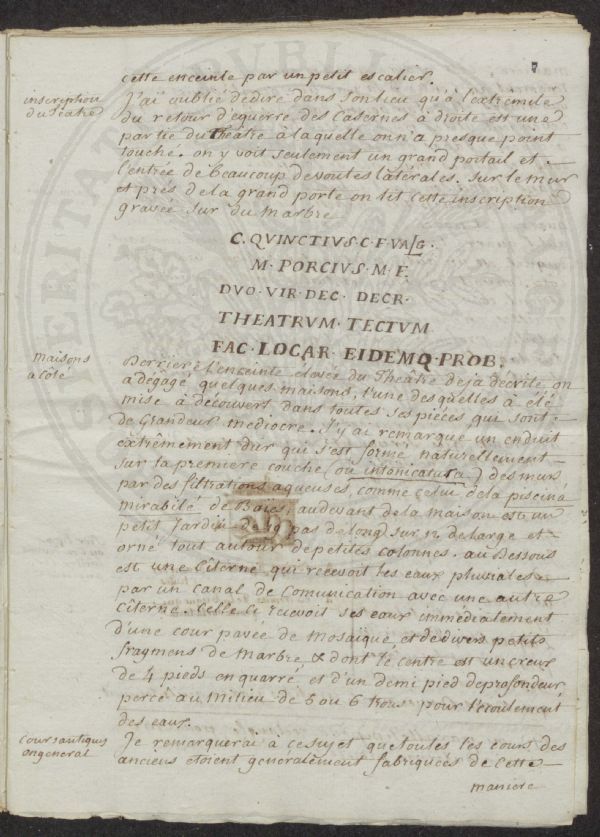 7
cette enceinte par un petit escalier.
inscription
du Teatre
J'ai oublié de dire dans son lieu qu'à l'extremité
du retour d'equerre des Casernes à droite est une
partie du Théâtre à laquelle on n'a presque point
touché. on y voit seulement un grand portail et
l'entrée de beaucoup de voutes latérales. sur le mur
et prés de la grand porte on lit cette inscription
gravée sur du Marbre
C. QVINCTIVS. C. F. VALG.
M. PORCIVS. M. F.
DVO. VIR. DEC. DECR.
THEATRVM. TECTVM
FAC. LOCAR. EIDEMQ. PROB.
maisons
a côté
Derriere l'enceinte du Théâtre deja décrite on
a dégagé quelques maisons, l'une desquelles a été
mise à découvert dans toutes ses piéces qui sont
de Grandeur mediocre. J'y ai remarqué un enduit
extrêmement dur qui s'est formé naturellement
sur la premiere couche (ou intonicatura) des murs
par des filtrations aqueuses, comme celui de la piscina
mirabilé de Baies, au devant de la maison est un
petit Jardin de 19 pas de long sur 12 de large et
orné tout autour de petites colonnes. au Dessous
est une Cîterne qui recevoit les eaux pluviales
par un canal de Comunication avec une autre
Cîterne. Celle ci recevoit ses eaux immédiatement
d'une cour pavée de mosaïque et de divers petits
fragmens de marbre & dont le centre est un creux
de 4 pieds en quarré et d'un demi pied de profondeur
percé au Milieu de 5 ou 6 trous pour l'écoulement
des eaux.
Cours antiques
en general
Je remarquerai à ce sujet que toutes les cours des
anciens étoient généralement fabriquées de cette
maniere